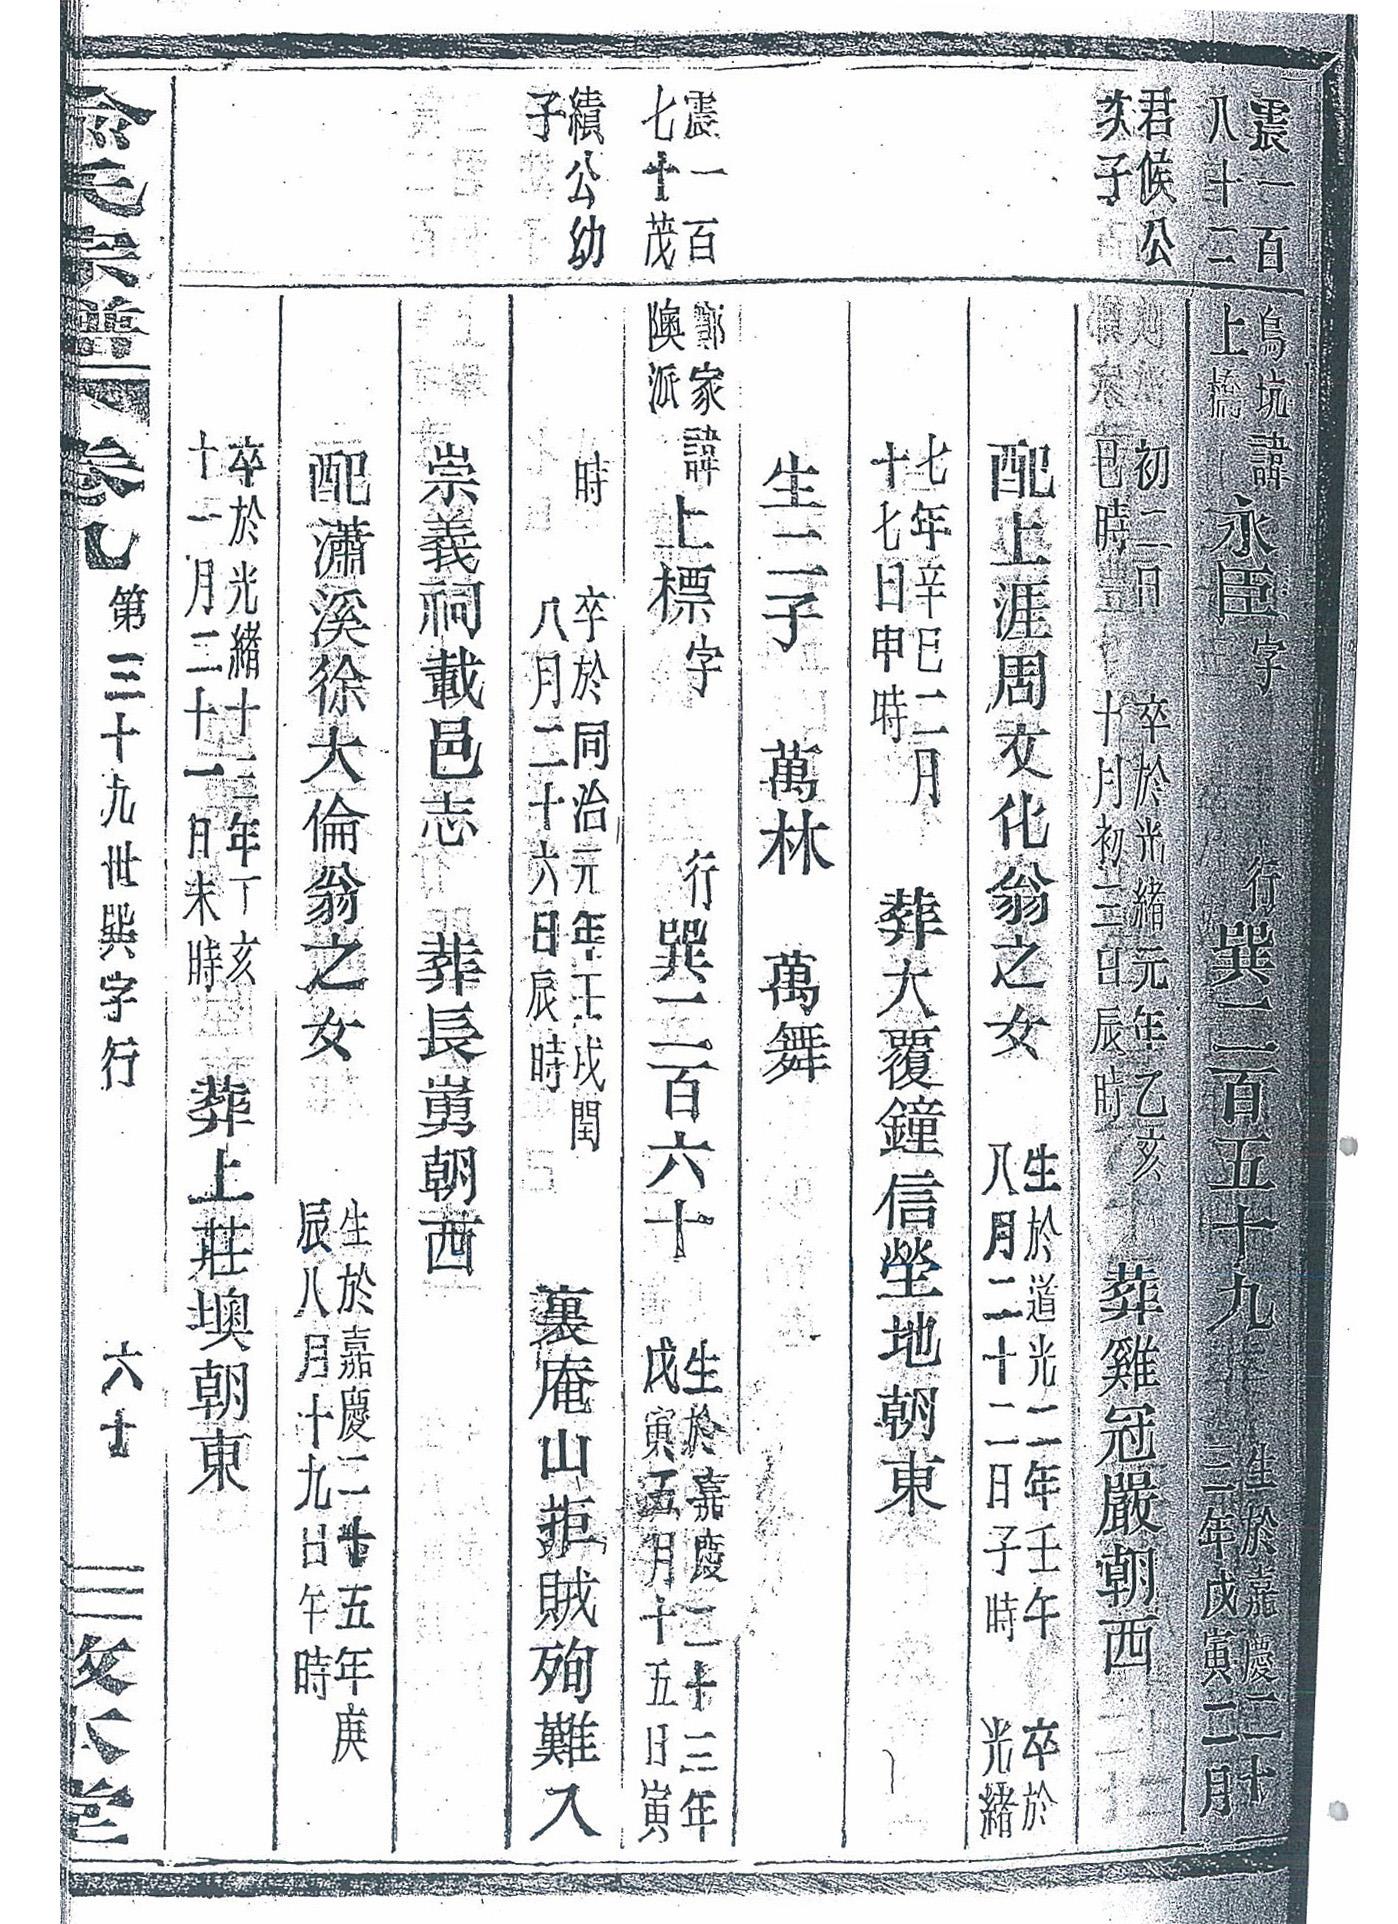 震一百八十二 烏坑上橋 諱永臣 字 行巽二百五十九 生於嘉慶二十三年戊寅二月
君候公次子 初二日巳時 卒於光緒元年乙亥十月初三日辰時 葬雞冠嚴朝西
配上涯周文化翁之女 生於道光二年壬午八月二十二日子時 卒於光緒
七年辛巳二月十七日申時 葬大覆鐘信塋地朝東
生二子 萬林 萬舞
震一百七十茂 鄭家隩派 諱上標 字 行巽二百六十 生於嘉慶二十三年戊寅五月十五日寅
績公幼子 時 卒於同治元年壬戌閏八月二十六日辰時 裏庵山拒賊殉難入
崇義祠載邑志 葬長嵩朝西
配瀟溪徐大倫翁之女 生於嘉慶二十五年庚辰八月十九日午時
卒於光緒十三年丁亥十一月二十一日未時 葬上莊墺朝東
俞氏宗譜 卷九 第三十九世巽字行 六十 敦本堂